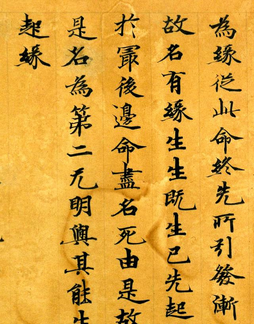 為緣從此命終先所引發漸
故名有緣生生既生已先起
於最後邊命盡名死由是故
是名為第二无明與其能生
起緣